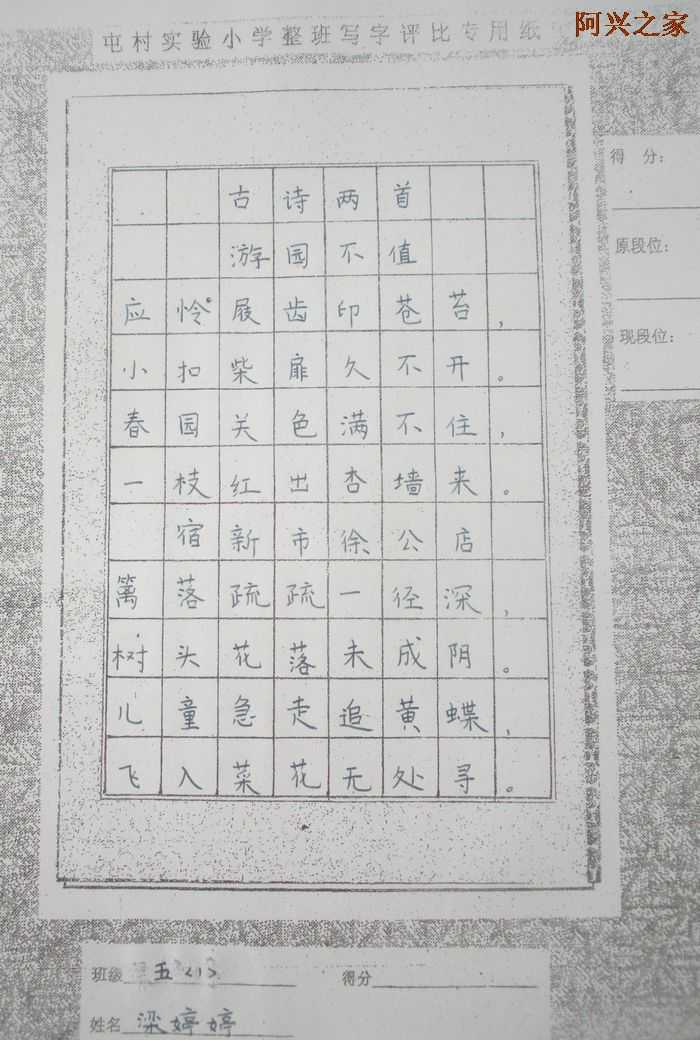 阿兴之家
屯村实验小学整班写字评比专用纸
得 分：
原段位：
现段位：
古诗两首
游园不值
应怜屐齿印苍苔，
小扣柴扉久不开。
春园关色满不住，
一枝红出杏墙来。
宿新市徐公店
篱落疏疏一径深，
树头花落未成阴。
儿童急走追黄蝶，
飞入菜花无处寻。
班级 五<1> 得分
姓名 梁婷婷